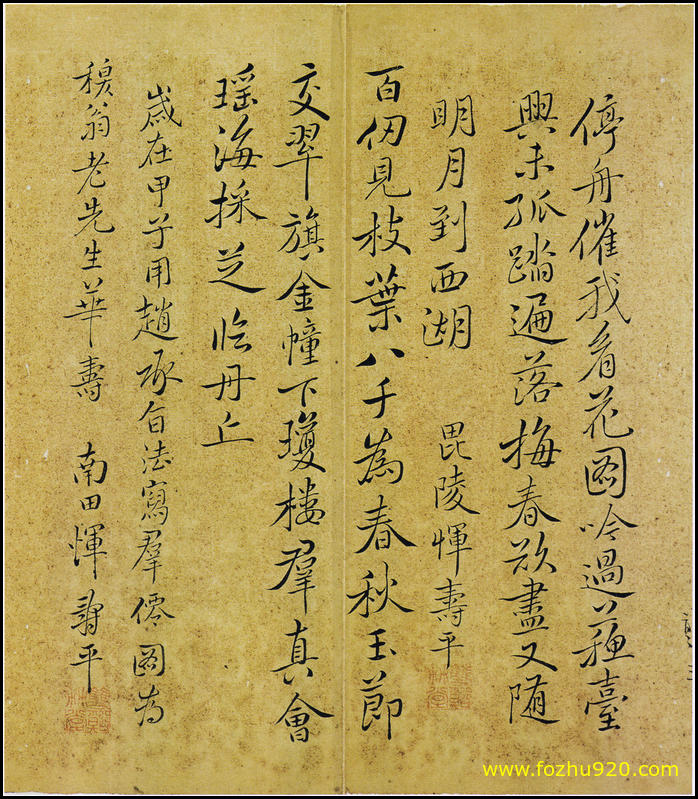 停舟催我看花圖吟過蘇臺
興未孤踏遍落梅春欲盡又随
明月到西湖 毘陵惲壽平
百仞見枝葉八千為春秋玉節
交翠旗金幢下瓊楼羣真會
瑶海採芝臨丹丘
嵗在甲子用趙承旨法寫羣僊圖為
翁老先生華壽 南田惲壽平
www.fozhu920.com